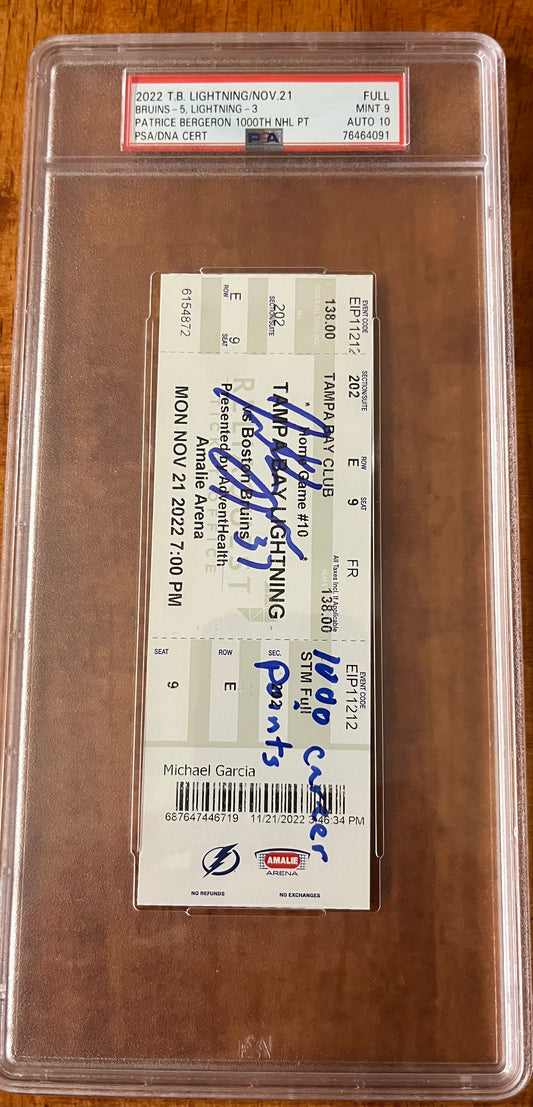 2022 T.B. LIGHTNING/NOV.21 FULL
BRUINS-5, LIGHTNING-3 MINT 9
PATRICE BERGERON 1000TH NHL PT AUTO 10
PSA/DNA CERT 76464091
PSA
EVENT CODE
EIP11212
138.00
SECTION/SUITE
202
ROW
E
SEAT
9
6154872
SECTION/SUITE ROW SEAT
202 E 9 FR
All Taxes Incl. If Applicable
TAMPA BAY CLUB 138.00
* Home Game #10 *
TAMPA BAY LIGHTNING
vs Boston Bruins
Presented by AdventHealth
Amalie Arena
MON NOV 21 2022 7:00 PM
37
1000 career
points
EVENT CODE
EIP11212
STM Full
SEC.
202
ROW
E
SEAT
9
Michael Garcia
687647446719 11/21/2022 3:46:34 PM
AMALIE
ARENA
NO REFUNDS NO EXCHANGES
PSA